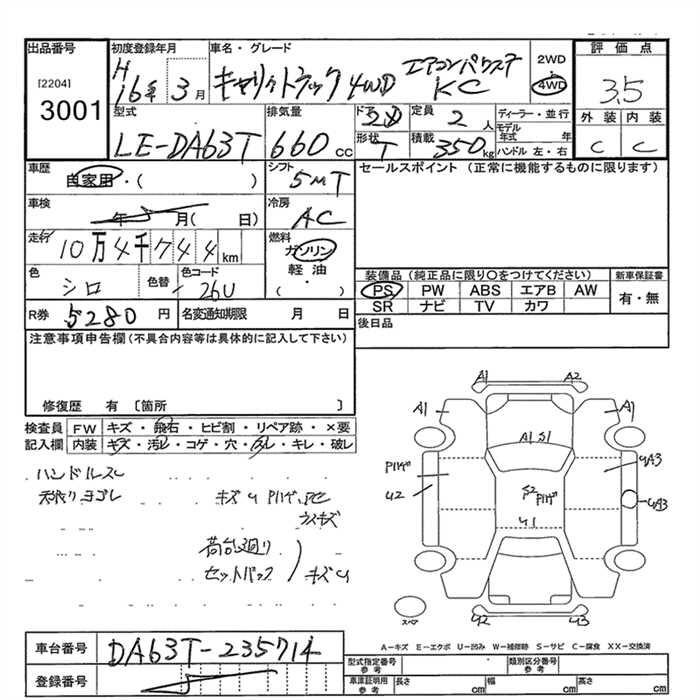 出品番号
[2204]
3001
初度登録年月
H
16年 3月
車名・グレード
キャリィトラック 4WD エアコンパワステ
KC
2WD
4WD
評価点
3.5
外装 内装
C C
型式
LE-DA63T
排気量
660 cc
ドア
2D
定員
2 人
形状
T
積載
350kg
ディーラー・並行
モデル年式 年
ハンドル 左・右
車歴
自家用・( )
シフト
5MT
セールスポイント (正常に機能するものに限ります)
車検
年 月( 日)
冷房
AC
走行
10万4千744km
燃料
ガソリン
軽油
( )
色
シロ
色替
色コード
26U
装備品 (純正品に限り○をつけてください)
PS PW ABS エアB AW
SR ナビ TV カワ
新車保証書
有・無
R券 5280 円
名変通知期限 月 日
後日品
注意事項申告欄 (不具合内容等は具体的に記入して下さい)
修復歴 有 〔箇所 〕
検査員記入欄
FW キズ・飛石・ヒビ割・リペア跡・×要
内装 キズ・汚レ・コゲ・穴・スレ・キレ・破レ
ハンドルスレ
天張リヨゴレ
キズ U Pハゲ
ウスキズ
荷台廻り
セットバック
キズU
A1 A2
A1 A1
A1 S1
Pハゲ
UA3
U2
S2
Pハゲ
UA3
U1
スペア
U2 U3
車台番号
DA63T-235714
登録番号
A-キズ E-エクボ U-凹み W-補修跡 S-サビ C-腐食 XX-交換済
型式指定番号
参考
類別区分番号
参考
車庫証明用
参考
長さ cm
幅 cm
高さ cm